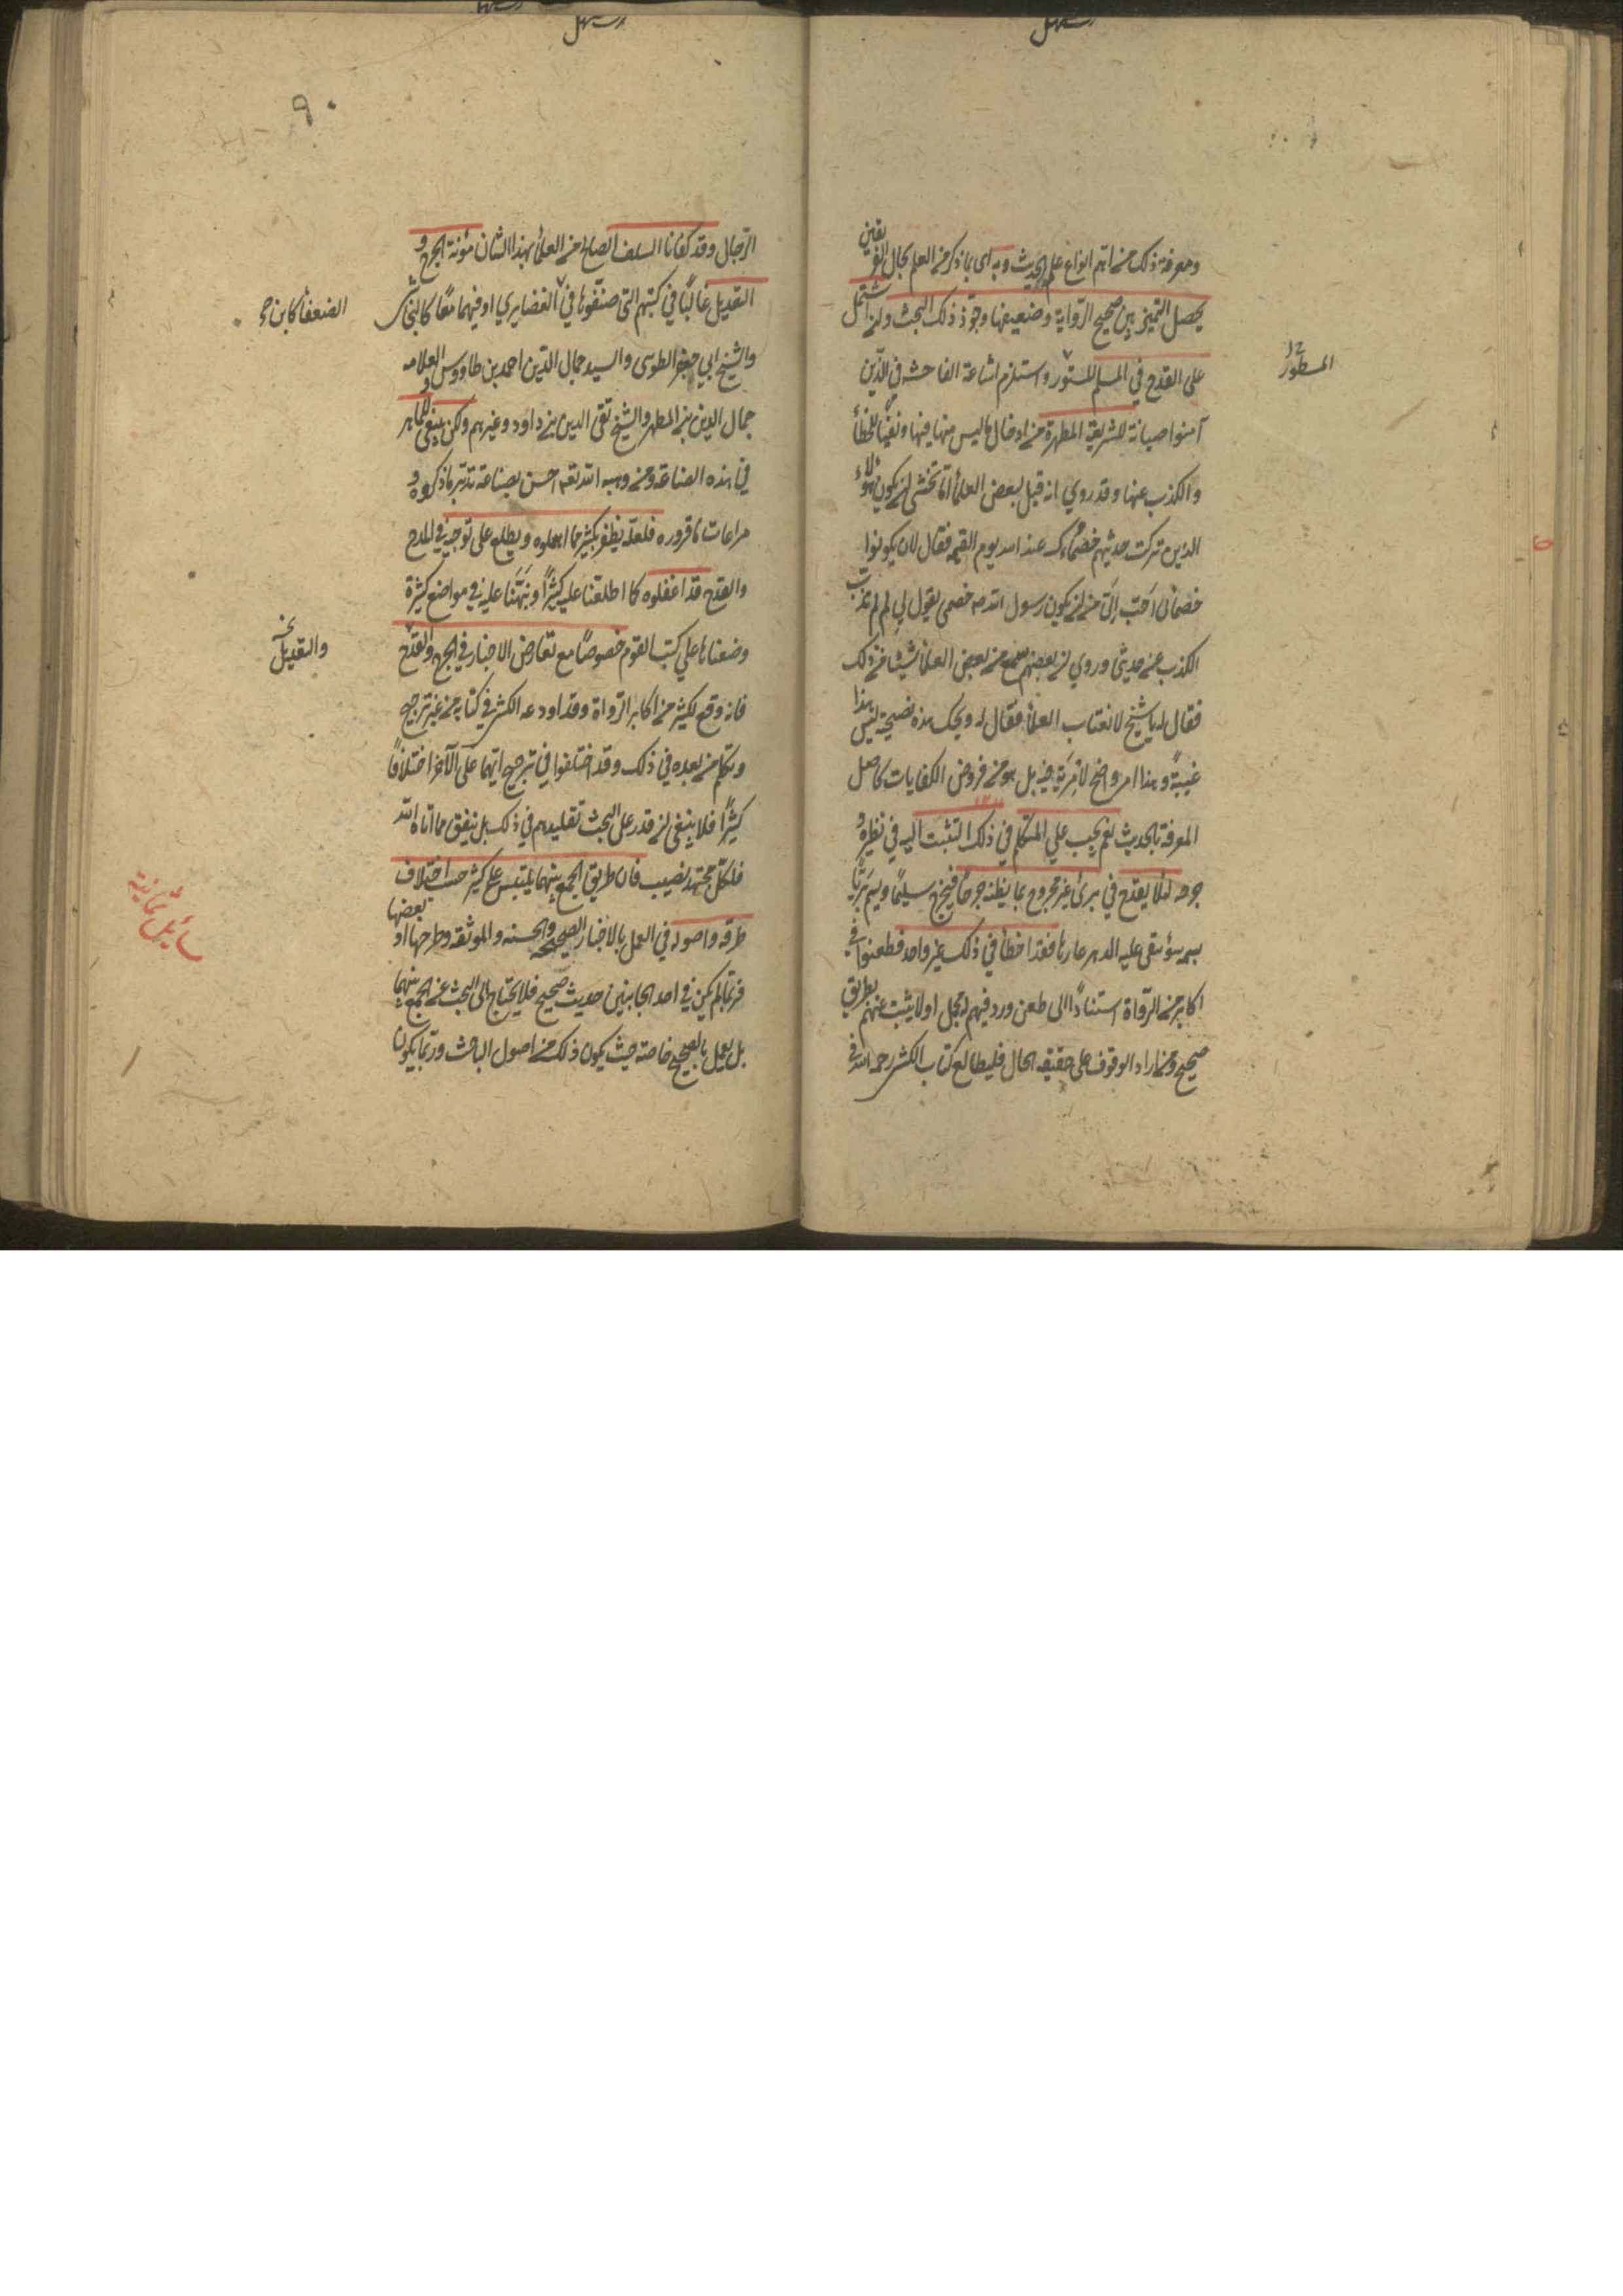 ومعرفة ذلك من اهم انواع علم الحديث وبه اى بما ذكر من العلم بحال الفريقين
يحصل التمييز بين صحيح الرواية وضعيفها وجوّز ذلك البحث وان اشتمل
على القدح في المسلم المستور واستلزم اشاعة الفاحشه في الذين
المسطور
آمنوا صيانة للشريعة المطهرة من ادخال ما ليس منها فيها ونفيًا للخطأ
والكذب عنها وقد روي انه قيل لبعض العلمأ اما تخشى ان يكون هؤلاء
الذين تركت حديثهم خصماءك عند الله يوم القيمه فقال لان يكونوا
خصمائى احَبّ الَىّ من ان يكون رسول الله ص خصمى يقول لِى لم لم تذب
الكذب عن حديثى وروي ان بعضهم سمع من بعض العلمأ شيئا من ذلك
فقال له يا شيخ لا تغتاب العلمأ فقال له ويحك هذه نصيحة ليس هذا
غيبةً وهذا امر واضح لا مِريَة فيه بل هو من فروض الكفايات كاصل
المعرفة بالحديث نعم يجب علي المتكلم في ذلك التثبت اليه في نظره و
جرحه لئلا يقدح في برئ غير مجروح بما يظنه جرحًا فيجرح سليمًا ويسم بريًّا
بسمه سؤ تبقى عليه الدهر عارها فقد اخطأ في ذلك غير واحد فطعنوا في
اكابر من الرّواة استنادًا الى طعن ورد فيهم له محمل او لا يثبت عنهم بطريق
صحيح ومن اراد الوقوف على حقيقه الحال فليطالع كتاب الكشى رحمه الله في
٩٠
الرّجال وقد كفانا السلف الصالح من العلمأ بهذا الشان مؤنة الجرح و
التعديل غالبًا في كتبهم التى صنّفوها في الغضايري او فيهما معًا كالنجاشى
الضعفأ كابن
والشيخ ابي جعفر الطوسى والسيد جمال الدّين احمد بن طاووس والعلامه
جمال الدين بن المطهر والشيخ تقى الدين بن داود وغيرهم ولكن ينبغى للماهر
في هذه الصناعة ومن وهبه الله تعه احسن بضاعة تدبّر ما ذكروه و
مراعات ما قرروره فلعلّه يظفر بكثير مما اهملوه ويطلع على توجيه في المدح
والقدح قد اغفلوه كما اطلعنا عليه كثيرًا ونبّهنا عليه في مواضع كثيرة
وضعناها علي كتب القوم خصوصًا مع تعارض الاخبار في الجرح والقدح
والتعديل
فانه وقع لكثير من اكابر الرّواة وقد اودعه الكشى في كتابه من غير ترجيح
وتكلم من بعده في ذلك وقد اختلفوا في ترجيح ايّهما على الآخر اختلافًا
كثيرًا فلا ينبغى لمن قدر على البحث تقليدهم في ذلك بل ينفق مما اتاه الله
فلكلّ مجتهد نصيب فان طريق الجمع بينهما يلتبس على كثير حسب اختلاف
طرقه واصوله في العمل بالاخبار الصحيحه والحسنه والموثقه وطرحها او بعضها
فربّما لم يكن في احد الجانبين حديث صحيح فلا يحتاج الى البحث عن الجمع بينهما
بل يعمل بالصحيح خاصة حيث يكون ذلك من اصول الباحث وربّما يكون